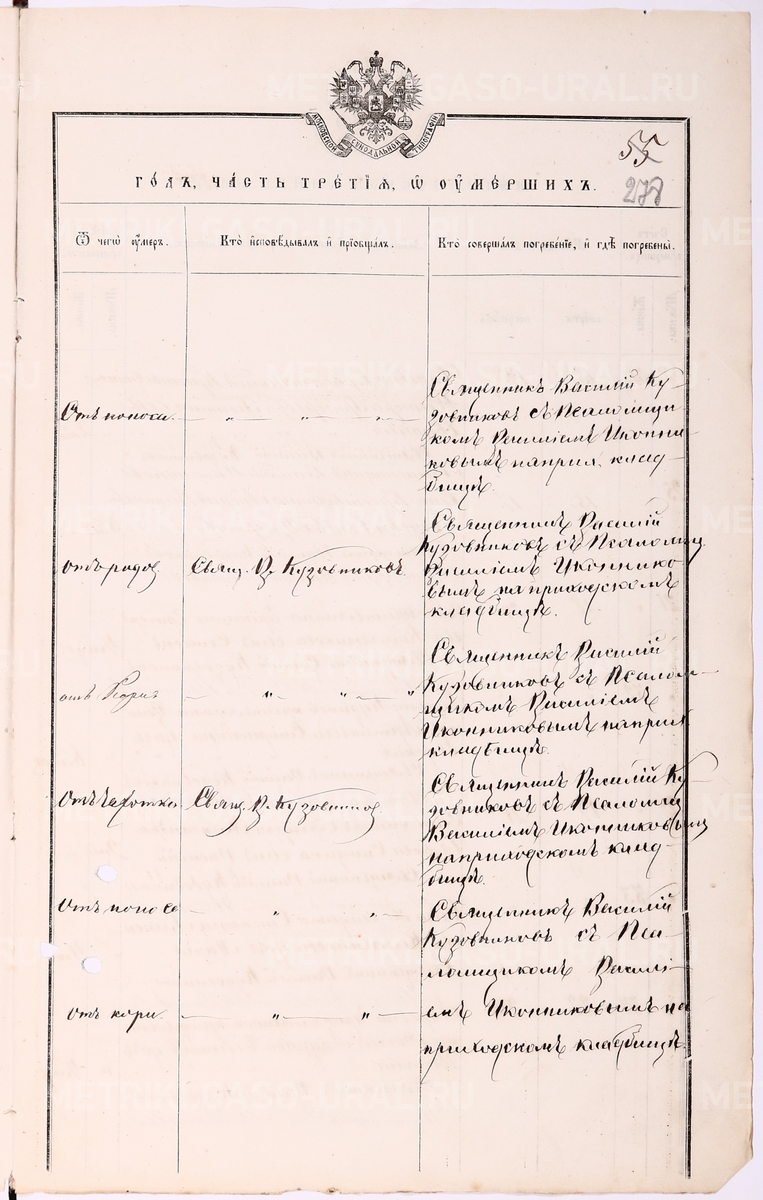 МОСКОВСКОЙ СУНОДАЛЬНОЙ ТИПОГРАФІИ
55
278
ГО́ДЪ, ЧА́СТЬ ТРЕ́ТІѦ, Ѿ ОУМЕ́РШИХЪ.
Ѿ чегѡ̀ оу́меръ.
Кто̀ и҆сповѣ́дывалъ и҆ прїѡбща́лъ.
Кто̀ соверша́лъ погребе́нїе, и҆ гдѣ̀ погребены̀.
Отъ поноса. — „ — „ —
Священникъ Василій Ку-
зовниковъ съ Псаломщи-
комъ Василіемъ Иконни-
ковымъ на прих. клад-
бищѣ.
отъ родов
Свящ. В. Кузовниковъ
Священникъ Василій
Кузовниковъ съ Псаломщ.
Василіемъ Иконнико-
вымъ на приходскомъ
кладбищѣ.
отъ — „ — „ — „
Священникъ Василій
Кузовниковъ съ Псалом-
щикомъ Василіемъ
Иконниковымъ на прих
кладбищѣ.
Отъ чахотки
Свящ. В. Кузовников
Священникъ Василій Ку-
зовниковъ съ Псаломщ
Василіемъ Иконниковым
на приходскомъ клад-
бищѣ.
Отъ поноса — „ — „ —
Священникъ Василій
Кузовниковъ съ Пса-
ломщикомъ Василі-
отъ кори. — „ — „ —
емъ Иконниковымъ на
приходскомъ кладбищѣ.
METRIKI.GASO-URAL.RU